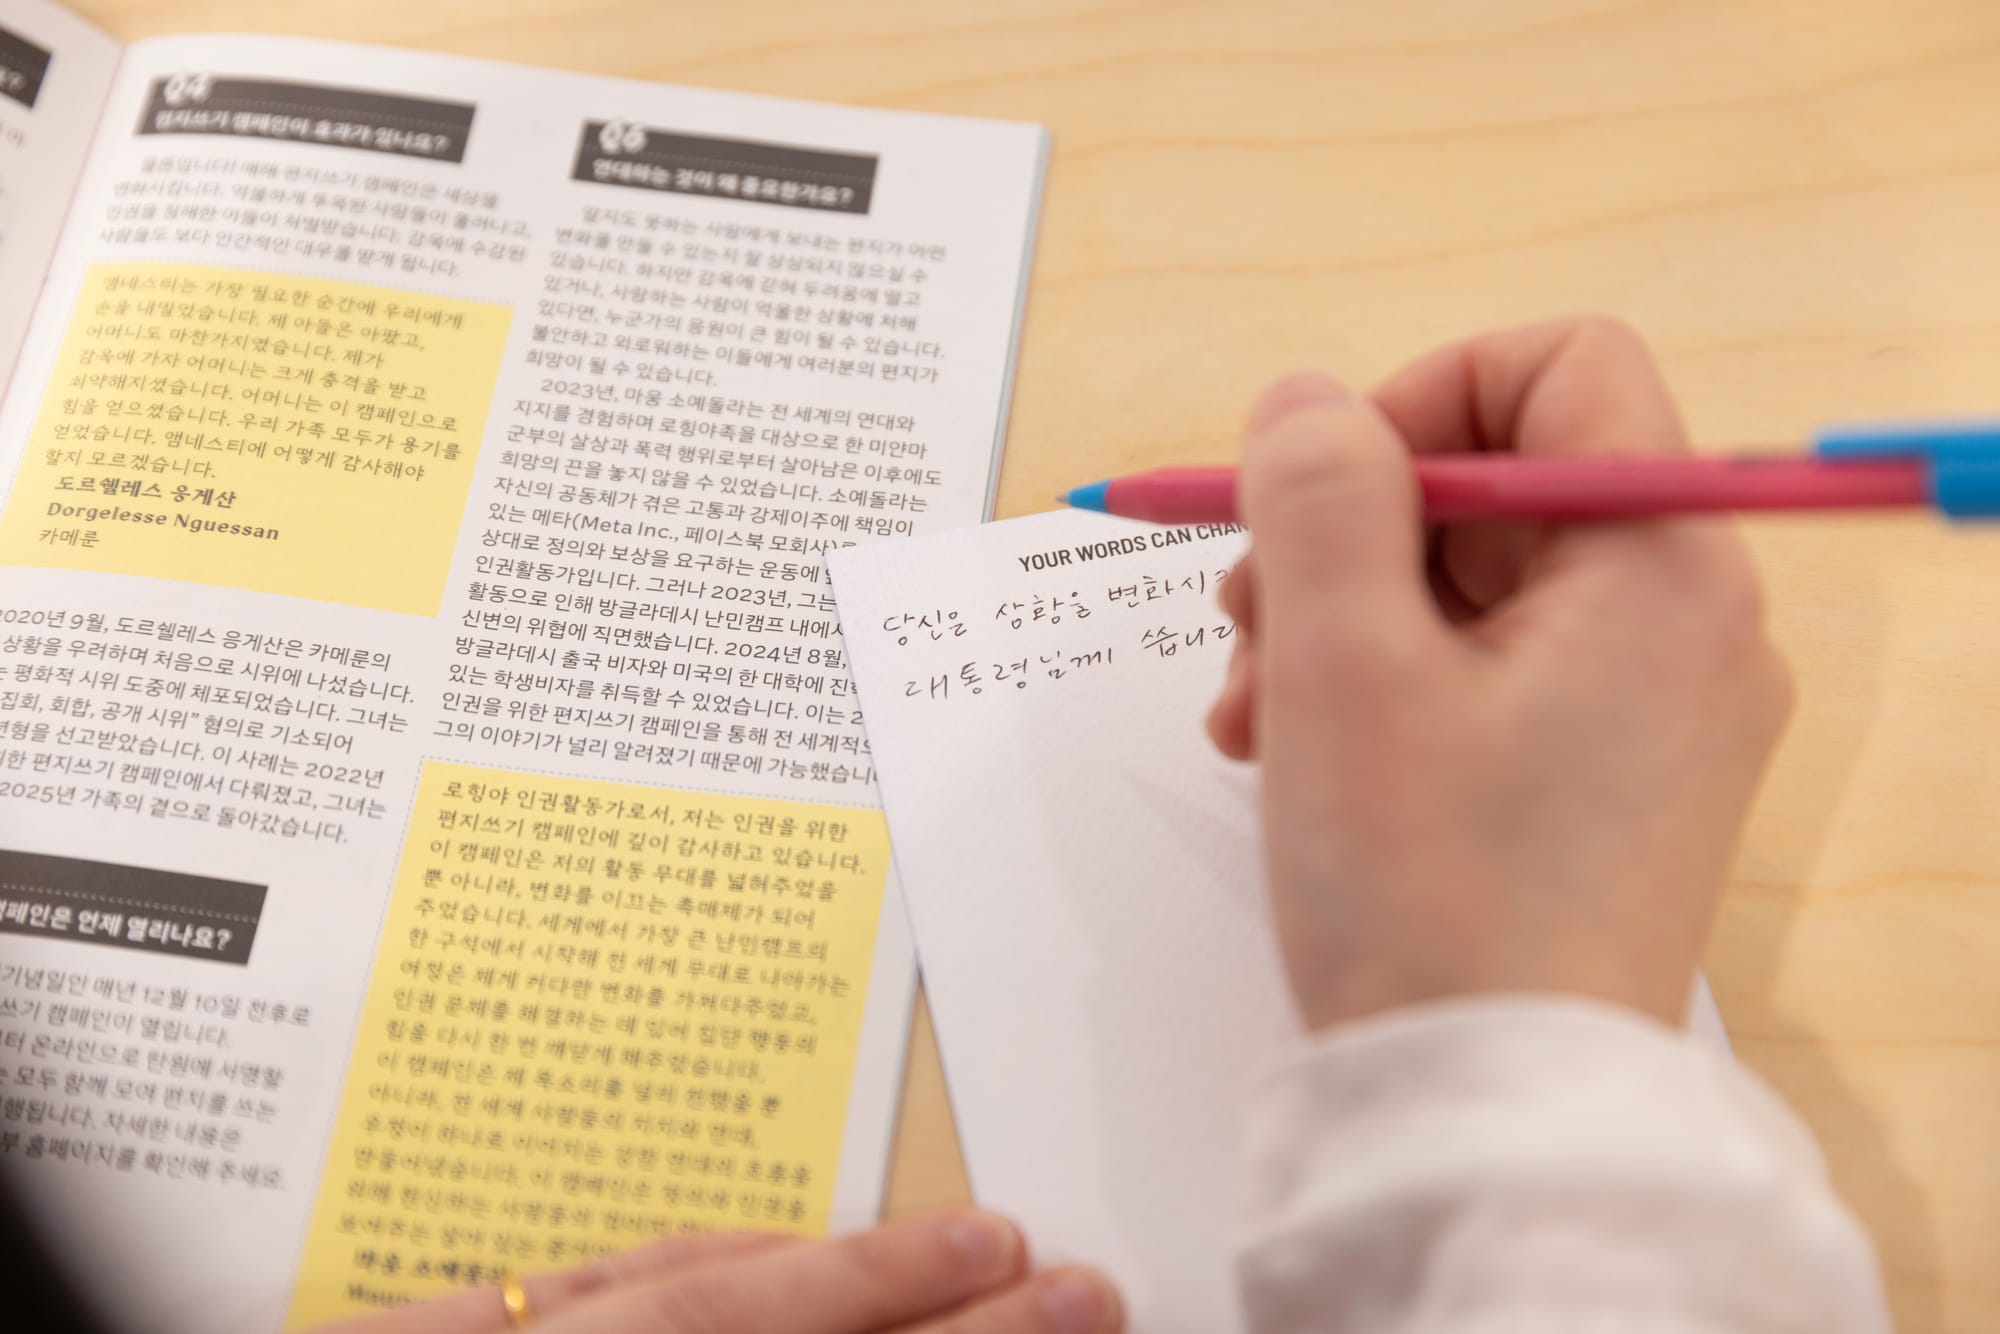 Q4
편지쓰기 캠페인이 효과가 있나요?
물론입니다! 매해 편지쓰기 캠페인은 세상을
변화시킵니다. 억울하게 투옥된 사람들이 풀려나고,
인권을 침해한 이들이 처벌받습니다. 감옥에 수감된
사람들도 보다 인간적인 대우를 받게 됩니다.
앰네스티는 가장 필요한 순간에 우리에게
손을 내밀었습니다. 제 아들은 아팠고,
어머니도 마찬가지였습니다. 제가
감옥에 가자 어머니는 크게 충격을 받고
쇠약해지셨습니다. 어머니는 이 캠페인으로
힘을 얻으셨습니다. 우리 가족 모두가 용기를
얻었습니다. 앰네스티에 어떻게 감사해야
할지 모르겠습니다.
도르쉘레스 응게산
Dorgelesse Nguessan
카메룬
2020년 9월, 도르쉘레스 응게산은 카메룬의
상황을 우려하며 처음으로 시위에 나섰습니다.
평화적 시위 도중에 체포되었습니다. 그녀는
집회, 회합, 공개 시위” 혐의로 기소되어
년형을 선고받았습니다. 이 사례는 2022년
위한 편지쓰기 캠페인에서 다뤄졌고, 그녀는
2025년 가족의 곁으로 돌아갔습니다.
캠페인은 언제 열리나요?
기념일인 매년 12월 10일 전후로
쓰기 캠페인이 열립니다.
부터 온라인으로 탄원에 서명할
모두 함께 모여 편지를 쓰는
진행됩니다. 자세한 내용은
부 홈페이지를 확인해 주세요.
연대하는 것이 왜 중요한가요?
알지도 못하는 사람에게 보내는 편지가 어떤
변화를 만들 수 있는지 잘 상상되지 않으실 수
있습니다. 하지만 감옥에 갇혀 두려움에 떨고
있거나, 사랑하는 사람이 억울한 상황에 처해
있다면, 누군가의 응원이 큰 힘이 될 수 있습니다.
불안하고 외로워하는 이들에게 여러분의 편지가
희망이 될 수 있습니다.
2023년, 마웅 소예돌라는 전 세계의 연대와
지지를 경험하며 로힝야족을 대상으로 한 미얀마
군부의 살상과 폭력 행위로부터 살아남은 이후에도
희망의 끈을 놓지 않을 수 있었습니다. 소예돌라는
자신의 공동체가 겪은 고통과 강제이주에 책임이
있는 메타(Meta Inc., 페이스북 모회사)를
상대로 정의와 보상을 요구하는 운동에
인권활동가입니다. 그러나 2023년, 그는
활동으로 인해 방글라데시 난민캠프 내에서
신변의 위협에 직면했습니다. 2024년 8월,
방글라데시 출국 비자와 미국의 한 대학에 진학
있는 학생비자를 취득할 수 있었습니다. 이는
인권을 위한 편지쓰기 캠페인을 통해 전 세계적으
그의 이야기가 널리 알려졌기 때문에 가능했습니
로힝야 인권활동가로서, 저는 인권을 위한
편지쓰기 캠페인에 깊이 감사하고 있습니다.
이 캠페인은 저의 활동 무대를 넓혀주었을
뿐 아니라, 변화를 이끄는 촉매제가 되어
주었습니다. 세계에서 가장 큰 난민캠프의
한 구석에서 시작해 전 세계 무대로 나아가는
여정은 제게 커다란 변화를 가져다주었고,
인권 문제를 해결하는 데 있어 집단 행동의
힘을 다시 한 번 깨닫게 해주었습니다.
이 캠페인은 제 목소리를 널리 전했을 뿐
아니라, 전 세계 사람들의 지지와 연대,
우정이 하나로 이어지는 강한 연대의
만들어냈습니다. 이 캠페인은 정의와 인권을
위해 헌신하는 사람들의
마웅 소예돌라
YOUR WORDS CAN CHAN
당신은 상황을 변화시키
대통령님께 씁니다